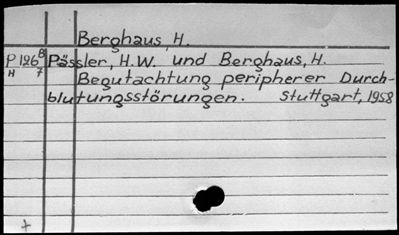 Berghaus, H.
P 126 8 Pässler, H.W. und Berghaus, H.
H 7 Begutachtung peripherer Durch-
blutungsstörungen. Stuttgart, 1958
+